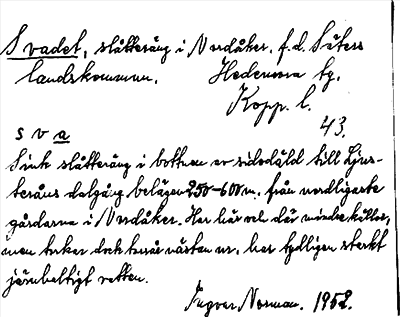 Svadet, slåtteräng i Nordåker, f.d. Säters
landskommun. Hedemora tg.
Kopp. l.
43.
s v a
Sink slåtteräng i bottnen av sidodäld till Ljus-
teråns dalgång belägen 250-600 m. från nordligaste
gårdarna i Nordåker. Har här och där mindre källor,
men torkar dock torrår nästan ur, har tydligen starkt
järnhaltigt vatten.
Ingvar Norman. 1952.